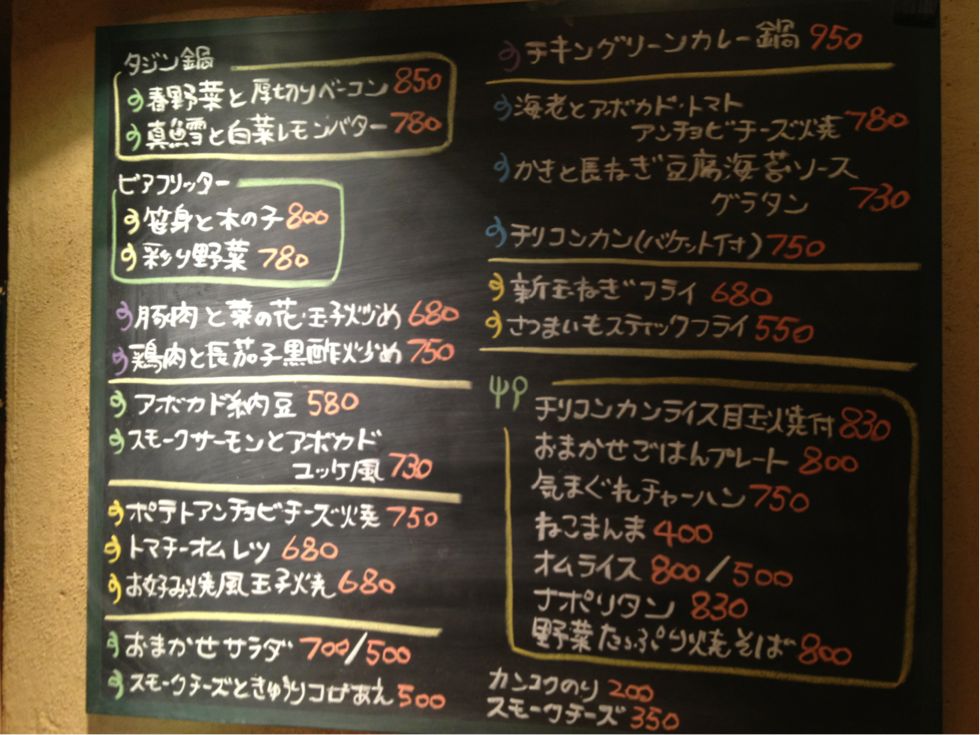 タジン鍋
春野菜と厚切りベーコン 850
真鱈と白菜レモンバター 780
ビアフリッター
笹身と木の子 800
彩り野菜 780
豚肉と菜の花・玉子炒め 680
鶏肉と長茄子黒酢炒め 750
アボカド納豆 580
スモークサーモンとアボカド
ユッケ風 730
ポテトアンチョビチーズ焼 750
トマチーオムレツ 680
お好み焼風玉子焼 680
おまかせサラダ 700/500
スモークチーズときゅうりコロあえ 500
チキングリーンカレー鍋 950
海老とアボカド・トマト
アンチョビチーズ焼 780
かきと長ねぎ豆腐海苔ソース
グラタン 730
チリコンカン(バケット付) 750
新玉ねぎフライ 680
さつまいもスティックフライ 550
チリコンカンライス目玉焼付 830
おまかせごはんプレート 800
気まぐれチャーハン 750
ねこまんま 400
オムライス 800/500
ナポリタン 830
野菜たっぷり焼そば 800
カンコクのり 200
スモークチーズ 350